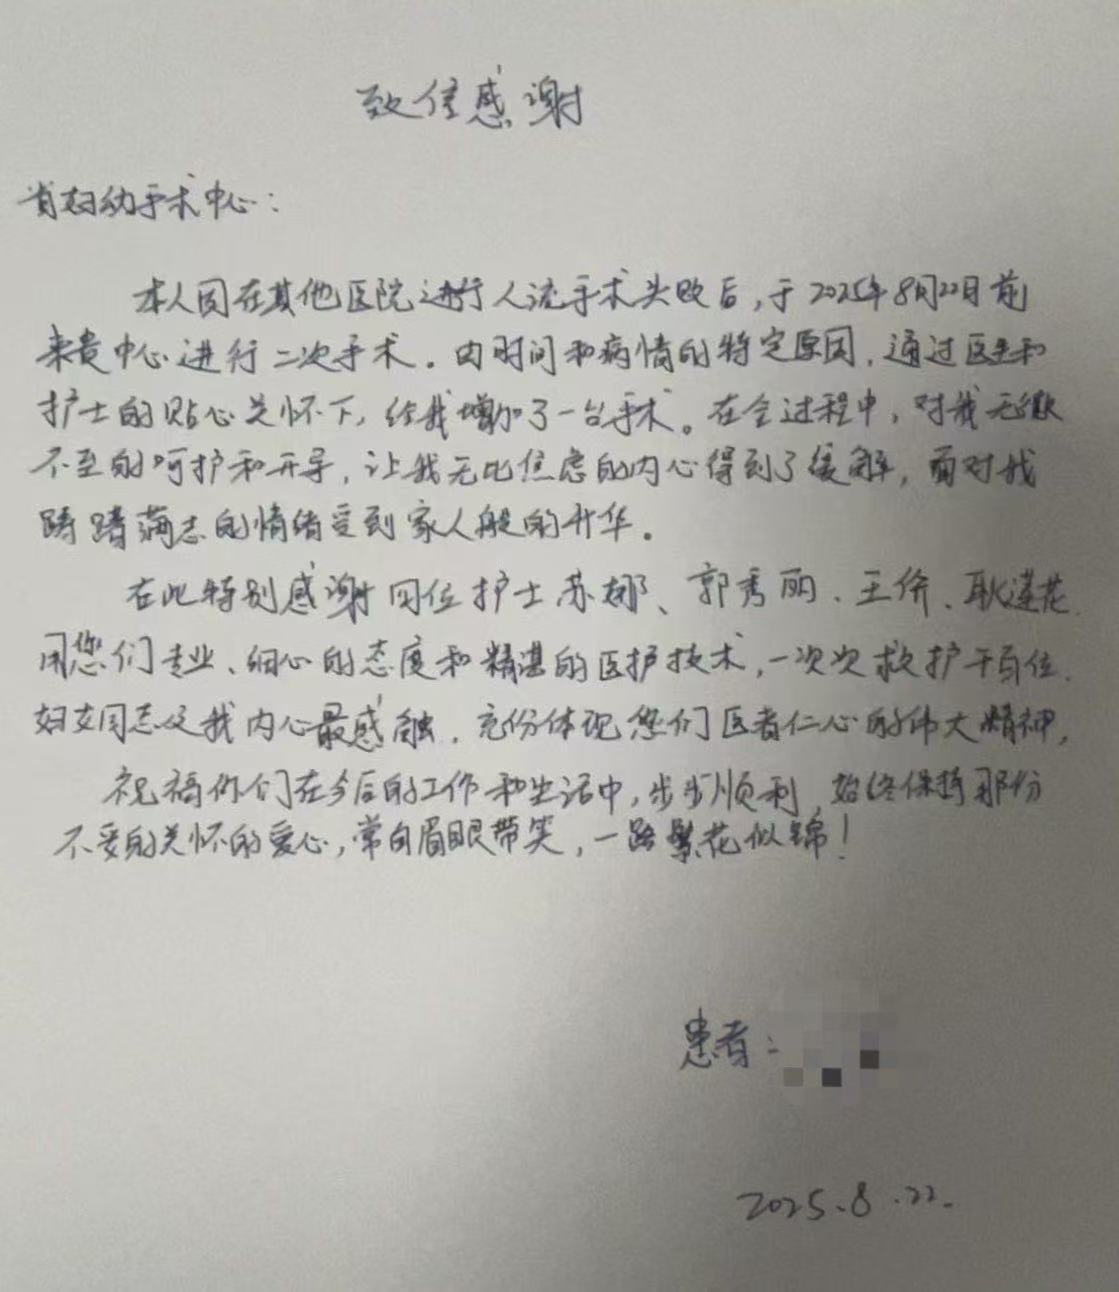 致信感谢
省妇幼手术中心:
本人因在其他医院进行人流手术失败后,于2025年8月22日前
来贵中心进行二次手术。由时间和病情的特定原因,通过医生和
护士的贴心关怀下,给我增加了一台手术。在全过程中,对我无微
不至的呵护和开导,让我无比焦虑的内心得到了缓解,面对我
踌躇满志的情绪受到家人般的升华。
在此特别感谢 护士苏娜、郭秀丽、王侨、耿莲花
用您们专业、细心的态度和精湛的医护技术,一次次救护千百位
妇女同志使我内心最感触,充份体现您们医者仁心的伟大精神,
祝福你们在今后的工作和生活中,步步顺利,始终保持那份
不变的关怀的爱心,常向眉眼带笑,一路繁花似锦!
患者:
2025.8.22.